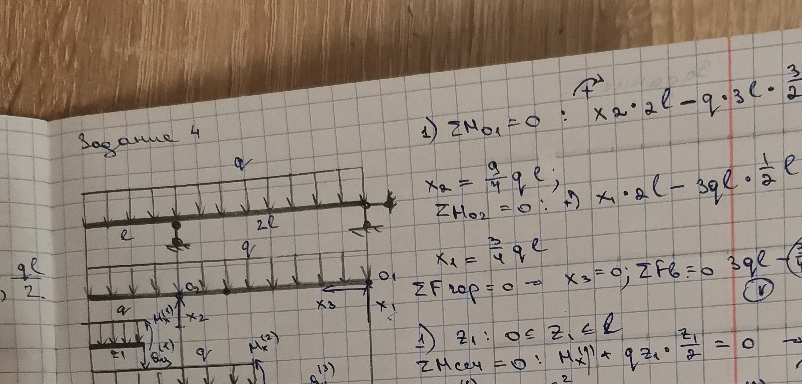 Задание 4
q
l
2l
q
O₂
O₁
x₃
x₁
x₂
q
Mx⁽¹⁾
z₁
q
Mx⁽²⁾
ql/2.
1) ΣM₀₁ = 0 : x₂·2l − q·3l·3/2
x₂ = 9/4 ql;
ΣM₀₂ = 0 : x₁·2l − 3ql·1/2 l
x₁ = 3/4 ql
ΣFгор = 0 → x₃ = 0; ΣFв = 0 3ql −
1) z₁ : 0 ≤ z₁ ≤ l
ΣMсеч = 0 : Mx⁽¹⁾ + qz₁·z₁/2 = 0 →